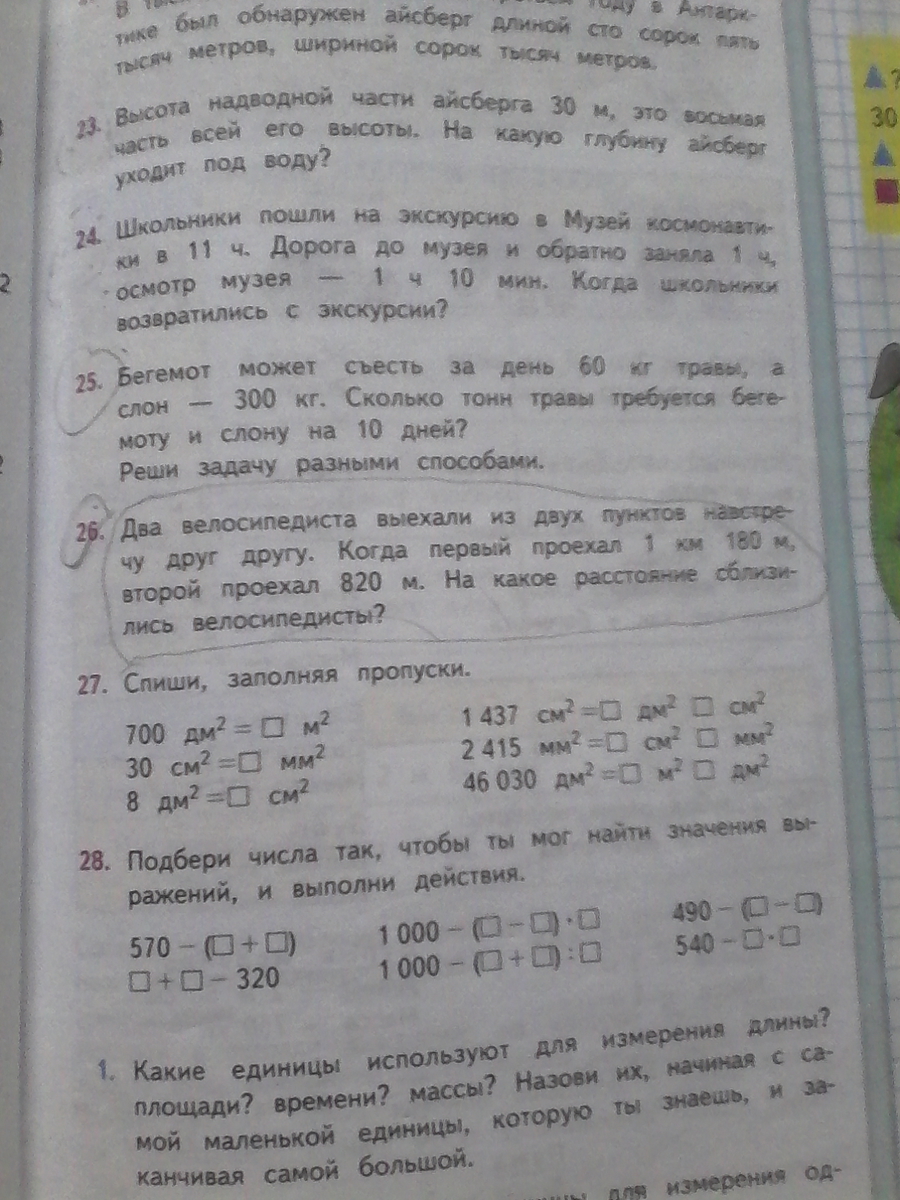 году в Антарк-
тике был обнаружен айсберг длиной сто сорок пять
тысяч метров, шириной сорок тысяч метров.
23. Высота надводной части айсберга 30 м, это восьмая
часть всей его высоты. На какую глубину айсберг
уходит под воду?
24. Школьники пошли на экскурсию в Музей космонавти-
ки в 11 ч. Дорога до музея и обратно заняла 1 ч,
осмотр музея — 1 ч 10 мин. Когда школьники
возвратились с экскурсии?
25. Бегемот может съесть за день 60 кг травы, а
слон — 300 кг. Сколько тонн травы требуется беге-
моту и слону на 10 дней?
Реши задачу разными способами.
26. Два велосипедиста выехали из двух пунктов навстре-
чу друг другу. Когда первый проехал 1 км 180 м,
второй проехал 820 м. На какое расстояние сблизи-
лись велосипедисты?
27. Спиши, заполняя пропуски.
700 дм² = □ м² 1 437 см² = □ дм² □ см²
30 см² = □ мм² 2 415 мм² = □ см² □ мм²
8 дм² = □ см² 46 030 дм² = □ м² □ дм²
28. Подбери числа так, чтобы ты мог найти значения вы-
ражений, и выполни действия.
570 − (□ + □) 1 000 − (□ − □) · □ 490 − (□ − □)
□ + □ − 320 1 000 − (□ + □) : □ 540 − □ · □
1. Какие единицы используют для измерения длины?
площади? времени? массы? Назови их, начиная с са-
мой маленькой единицы, которую ты знаешь, и за-
канчивая самой большой.
для измерения од-
?
30
2